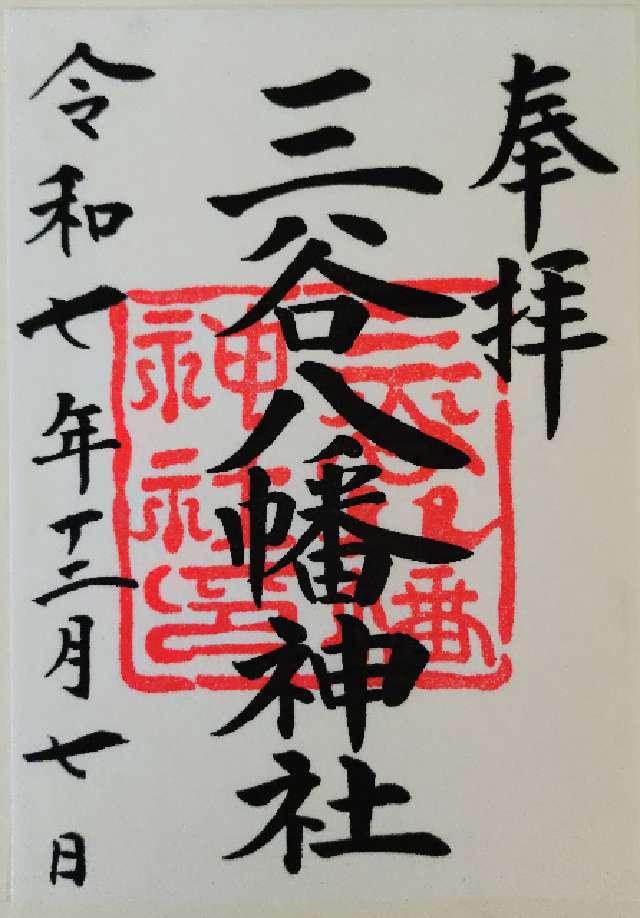 奉拝
三谷八幡神社
令和七年十二月七日